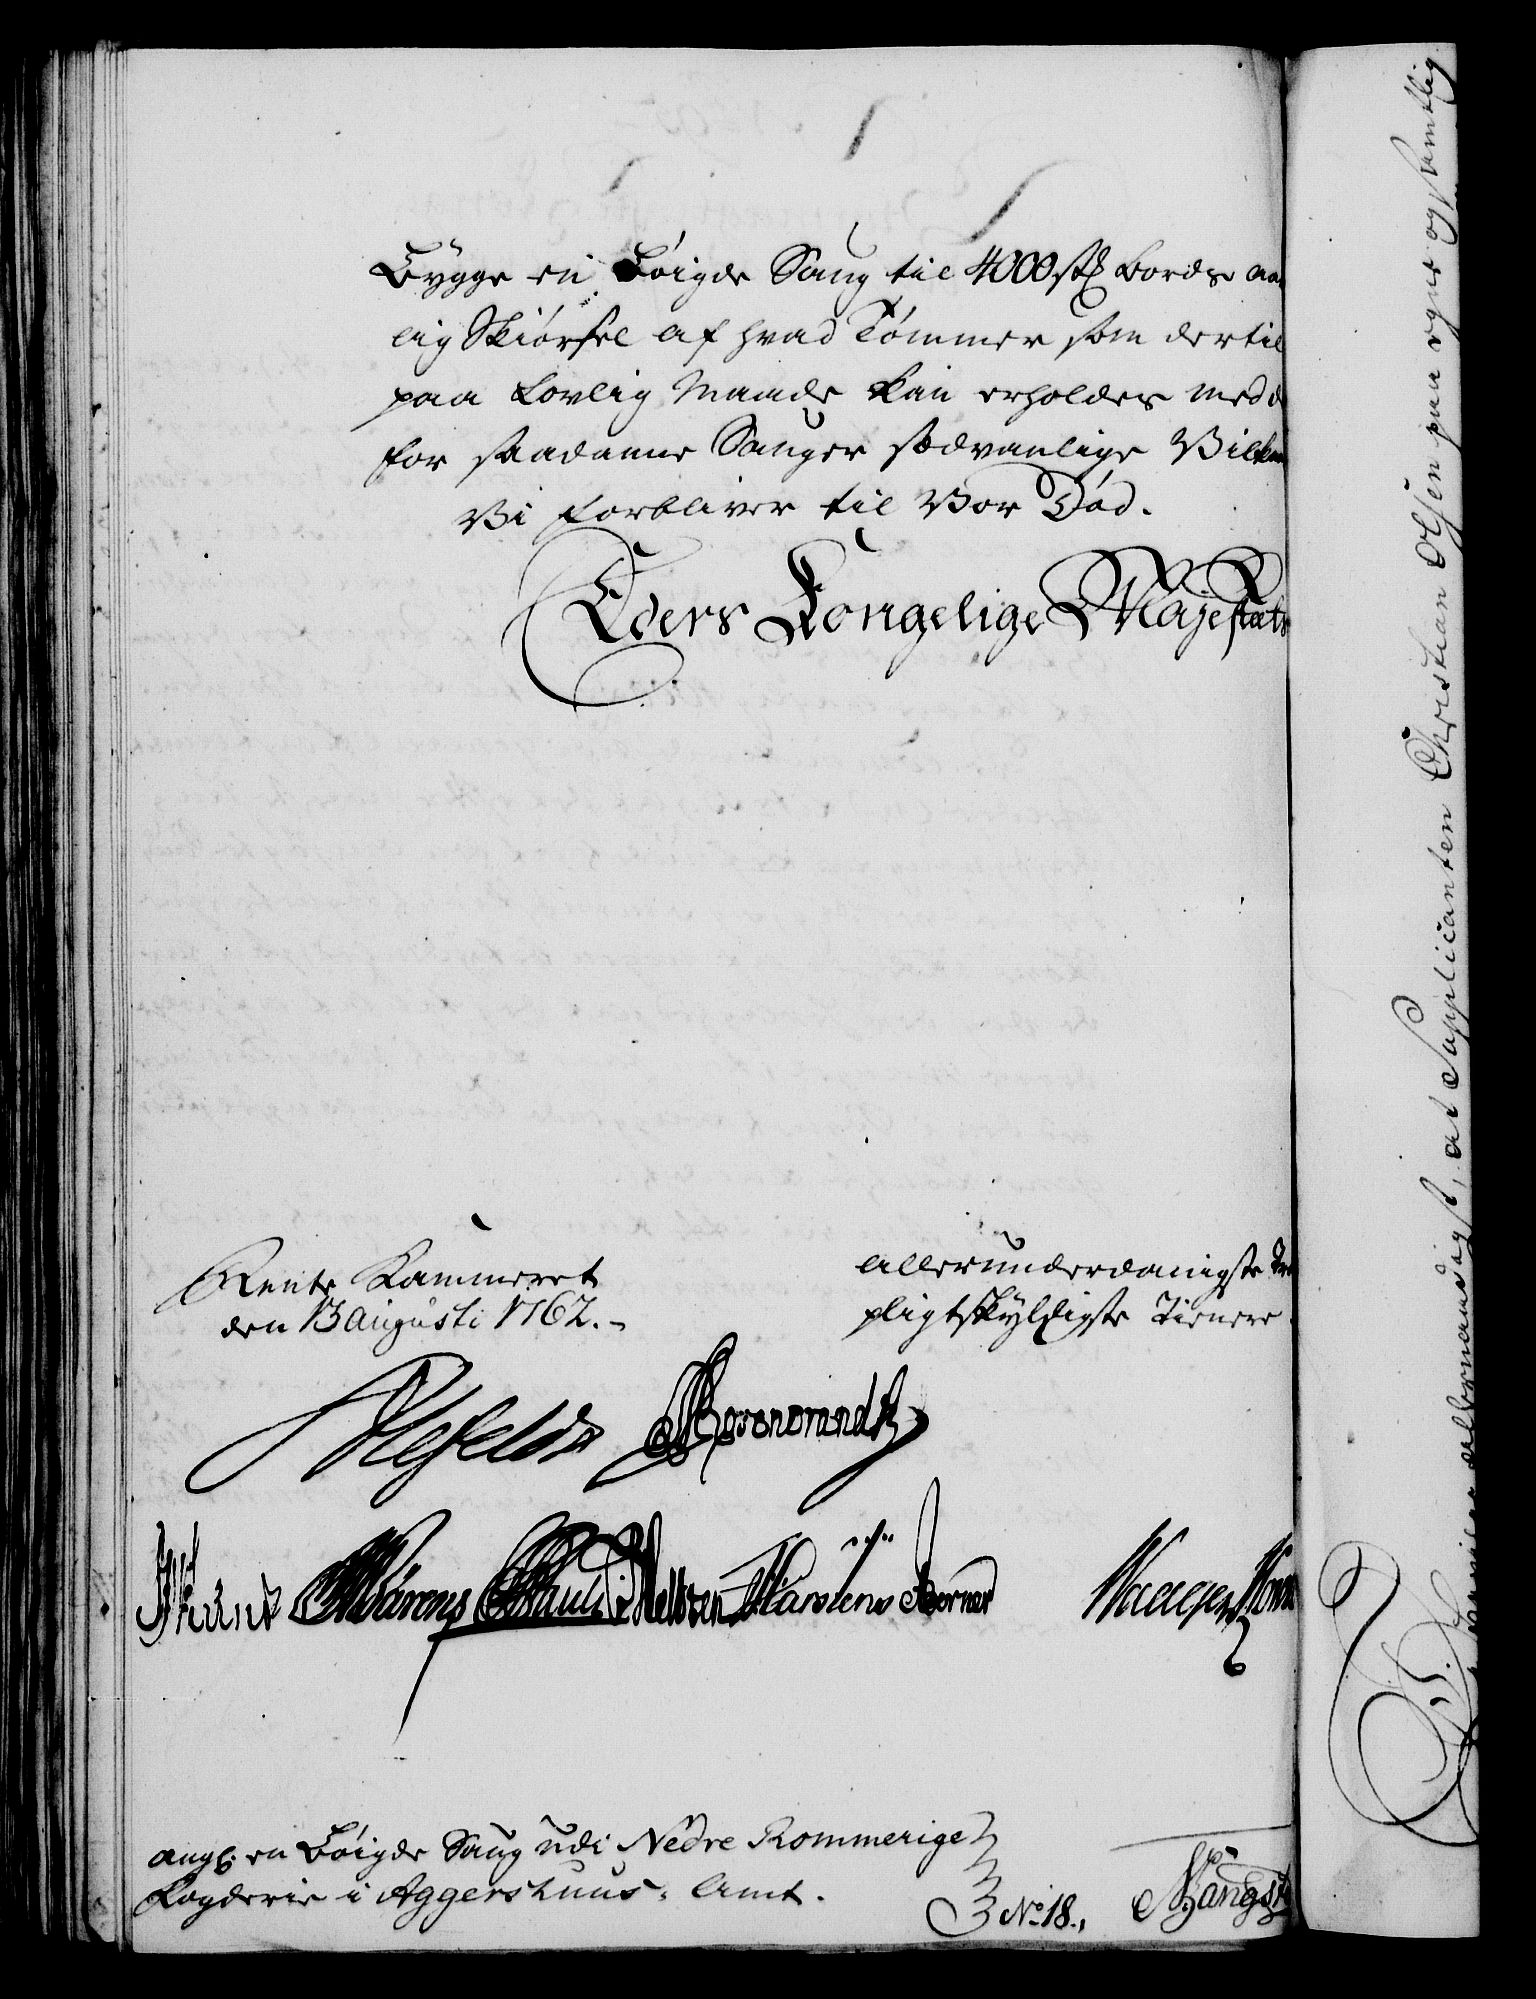 Bygge en Bøigde Saug til 4000 stk Bords aar
lig Skiørsel af hvad Tømmer som dertil
paa Lovlig Maade kan erholdes med de
for saadanne Sauger sædvanlige Vilkaar
Vi forbliver til Vor Død.
Eders Kongelige Majestæts
Rente Kammeret
den 13 augusti 1762.-
allerunderdanigste
pligtskyldigste Tienere.
Ahlefeldt
Bärens Pauli Holtzen Martens Berner
ang: en Bøigde Saug udi Nedre Rommerige
Fogderie i Aggershuus: Amt.
No 18.,
Bangst
allernaadigst, at Supplicanten Christian Olsen paa egne og samtlig